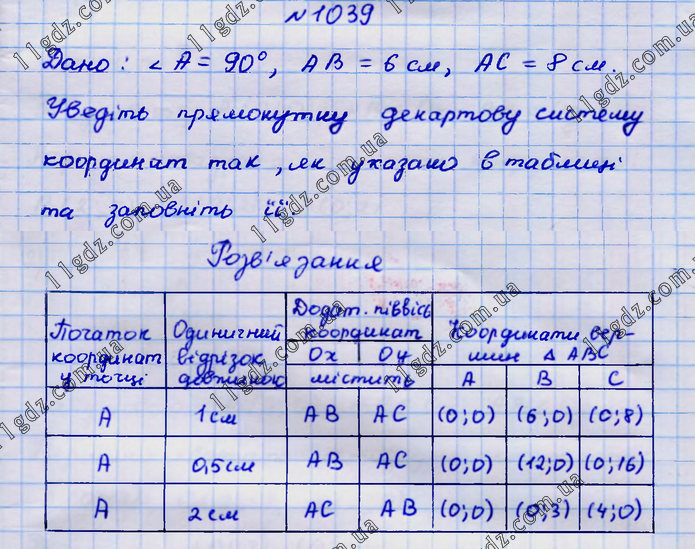 №1039
Дано: ∠A = 90°, AB = 6 см, AC = 8 см.
Уведіть прямокутну декартову систему
координат так, як указано в таблиці
та заповніть її.
Розв'язання
Початок координат у точці | Одиничний відрізок довжиною | Додат. піввісь координат | Координати вершин Δ ABC
Ox | Oy
містить | A | B | C
A | 1 см | AB | AC | (0;0) | (6;0) | (0;8)
A | 0,5 см | AB | AC | (0;0) | (12;0) | (0;16)
A | 2 см | AC | AB | (0;0) | (0;3) | (4;0)
11gdz.com.ua